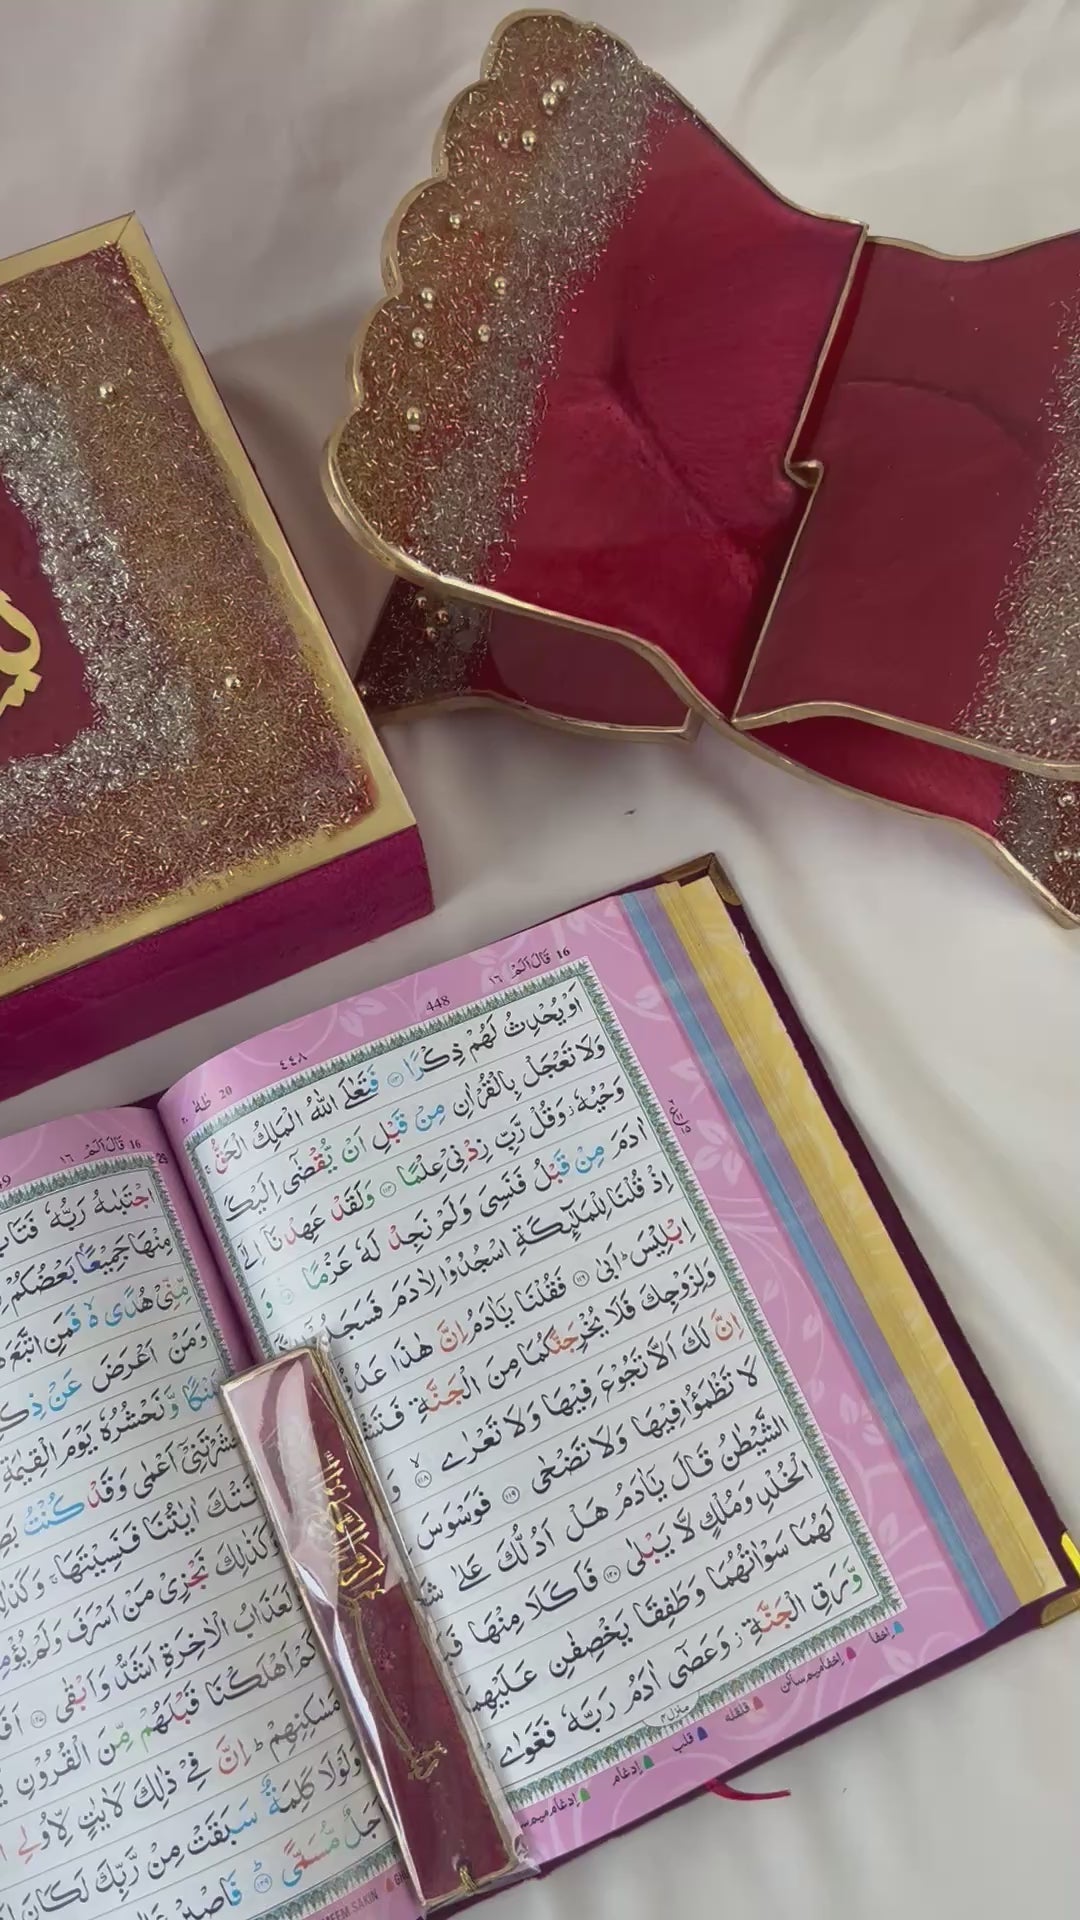 طٰهٰ 20
٤٤٨
448
قَالَ اَلَمْ ١٦ 16
اَوْ يُحْدِثُ لَهُمْ ذِكْرًا ﴿١١٣﴾ فَتَعٰلَى اللّٰهُ الْمَلِكُ الْحَقُّ ۚ
وَلَا تَعْجَلْ بِالْقُرْاٰنِ مِنْ قَبْلِ اَنْ يُّقْضٰٓى اِلَيْكَ
وَحْيُهٗ ؗ وَقُلْ رَّبِّ زِدْنِيْ عِلْمًا ﴿١١٤﴾ وَلَقَدْ عَهِدْنَآ اِلٰٓى
اٰدَمَ مِنْ قَبْلُ فَنَسِيَ وَلَمْ نَجِدْ لَهٗ عَزْمًا ﴿١١٥﴾ وَ
اِذْ قُلْنَا لِلْمَلٰٓئِكَةِ اسْجُدُوْا لِاٰدَمَ فَسَجَدُوْٓا
اِبْلِيْسَ ؕ اَبٰى ﴿١١٦﴾ فَقُلْنَا يٰٓاٰدَمُ اِنَّ هٰذَا عَدُوٌّ
وَلِزَوْجِكَ فَلَا يُخْرِجَنَّكُمَا مِنَ الْجَنَّةِ فَتَشْ
اِنَّ لَكَ اَلَّا تَجُوْعَ فِيْهَا وَلَا تَعْرٰى ﴿١١٨﴾ وَ
لَا تَظْمَؤُا فِيْهَا وَلَا تَضْحٰى ﴿١١٩﴾ فَوَسْوَسَ
الشَّيْطٰنُ قَالَ يٰٓاٰدَمُ هَلْ اَدُلُّكَ عَلٰى شَ
الْخُلْدِ وَمُلْكٍ لَّا يَبْلٰى ﴿١٢٠﴾ فَاَكَلَا مِنْهَا فَبَ
لَهُمَا سَوْاٰتُهُمَا وَطَفِقَا يَخْصِفٰنِ عَلَيْهِمَا
وَّرَقِ الْجَنَّةِ ؗ وَعَصٰٓى اٰدَمُ رَبَّهٗ فَغَوٰى
منزل ٤
إخفا
إخفا ميم ساكن
قلقله
قلب
إدغام
إدغام ميم
قَالَ اَلَمْ ١٦ 16
اجْتَبٰىهُ رَبُّهٗ فَتَابَ
مِنْهَا جَمِيْعًا بَعْضُكُمْ
مِّنِّيْ هُدًى ۙ فَمَنِ اتَّبَعَ
وَمَنْ اَعْرَضَ عَنْ ذِكْ
ضَنْكًا وَّنَحْشُرُهٗ يَوْمَ الْقِيٰمَةِ
حَشَرْتَنِيْٓ اَعْمٰى وَقَدْ كُنْتُ بَصِ
اَتَتْكَ اٰيٰتُنَا فَنَسِيْتَهَا ۚ وَكَذٰلِ
وَكَذٰلِكَ نَجْزِيْ مَنْ اَسْرَفَ وَلَمْ يُؤْمِ
لَعَذَابُ الْاٰخِرَةِ اَشَدُّ وَاَبْقٰى ﴿١٢٧﴾ اَفَ
كَمْ اَهْلَكْنَا قَبْلَهُمْ مِّنَ الْقُرُوْنِ
مَسٰكِنِهِمْ ؕ اِنَّ فِيْ ذٰلِكَ لَاٰيٰتٍ لِّاُولِي
وَلَوْلَا كَلِمَةٌ سَبَقَتْ مِنْ رَّبِّكَ لَكَانَ
اَجَلٌ مُّسَمًّى ﴿١٢٩﴾ فَاصْبِرْ
MEEM SAKIN